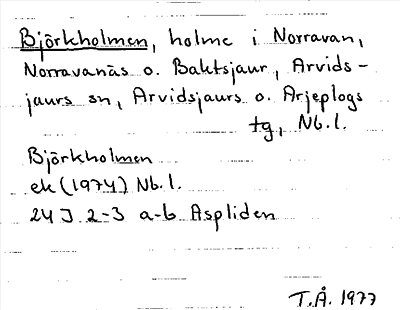 Björkholmen, holme i Norravan,
Norravanäs o. Baktsjaur, Arvids-
jaurs sn, Arvidsjaurs o. Arjeplogs
tg, Nb.l.
Björkholmen
ek (1974) Nb.l.
24J 2-3 a-b Aspliden
T.Å. 1977